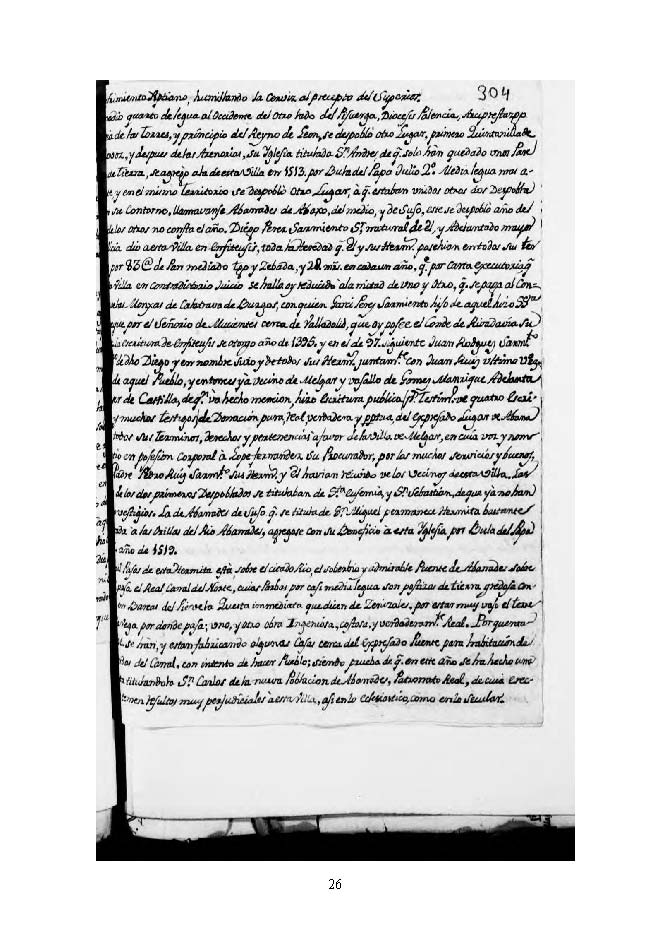 304
himiento Ageno, humillando la Cerviz al precepto del Superior.
medio quarto de legua al Occidente del otro lado del Pisuerga, Diocesis Palencia, Arciprestazgo
de las Torres, y principio del Reyno de Leon, se despobló otro Lugar, primero Quintanilla de
, y despues de las Arenarias, Su Yglesia titulada Sn. Andres de q. solo hàn quedado unas Pare
de Tierra, se agrejo à la de esta Villa en 1513. por Bula del Papa Julio 2º. Media legua mas a-
e, y en el mismo Territorio se despobló Otro Lugar, à q. estaban unidos otros dos Despobla
n su Contorno, llamavanse Abanades de Abaxo, del medio, y de Suso, este se despobló año de
de los otros no consta el año. Diego Perez Sarmiento Sr. natural de èl, y Adelantado mayor
dio à esta Villa en Enfiteusis, toda la Heredad q. èl y sus Herm. posehian en todos Sus ter
por 83 @ de Pan mediado tgo y Zebada, y 20 mrs. en cada un año, q. por Carta executoria q
Villa en contradictorio Juicio se halla oy reducido à la mitad de uno y Otro, q. se paga al Con-
Monxas de Calatrava de Burgos, con quien Garci Perez Sarmiento hijo de aquel hizo
que, por el Señorio de Mucientes cerca de Valladolid, que oy posee el Conde de Rivadavia Su
la Escritura de Enfiteusis se otorgo año de 1395. y en el de 97. siguiente Juan Rodgues. Sarmto.
de dho Diego y en nombre Suio y de todos sus Herms. juntamte. con Juan Ruiz ultimo Veza
de aquel Pueblo, y entonces ya vecino de Melgar y vasallo de Gomez Manrique Adelanta
or de Castilla, de qn. va hecho mencion, hizo Escritura publica pr. Testimo. de quatro Escri-
y muchos testigos, de Donación pura, real, verdadera y pptua, del expresado Lugar de Abana
todos Sus Terminos, derechos y pertenencias à favor de la Villa de Melgar, en cuia voz y nom
tio en posesion Corporal à Lope fernandez Su Procurador, por los muchos Servicios y buenos,
Padre Pedro Ruiz Sarmto. Sus Herms. y èl havian recivido de los Vecinos de esta Villa. Las
de los dos primeros Despoblados se titulaban de Sta. Eufemia, y Sn. Sebastian, de que yà no han
vestigios. La de Abanades de Suso q. se titula de Sn. Miguel permanece Hermita bastante
ada à las Orillas del Rio Abanades, agregose con su Beneficio à esta Yglesia por Bula del Papa
año de 1519.
Pasos de esta Hermita està, sobre el citado Rio, el soberbio y admirable Puente de Abanades sobre
pasa el Real Canal del Norte, cuias ambos por casi media legua son postizas de tierra gredosa con
en Barcas del Pisuerga la Questa immediata que dicen de Zenizales. por estar muy vajo el terre
vega por donde pasa; uno, y otro obra Ingeniosa, costosa, y verdaderamte. Real. Por quenta
se hàn, y estan fabricando algunas Casas cerca del expresado Puente para havitacion de
dos del Canal, con intento de hacer Pueblo; siendo prueba de q. en este año se ha hecho una
titulandola Sn. Carlos de la nueva Poblacion de Abanades, Patronato Real, de cuia erec-
temen resultas muy perjudiciales à esta Villa, asi en lo eclesiastico, como en lo Secular.
26